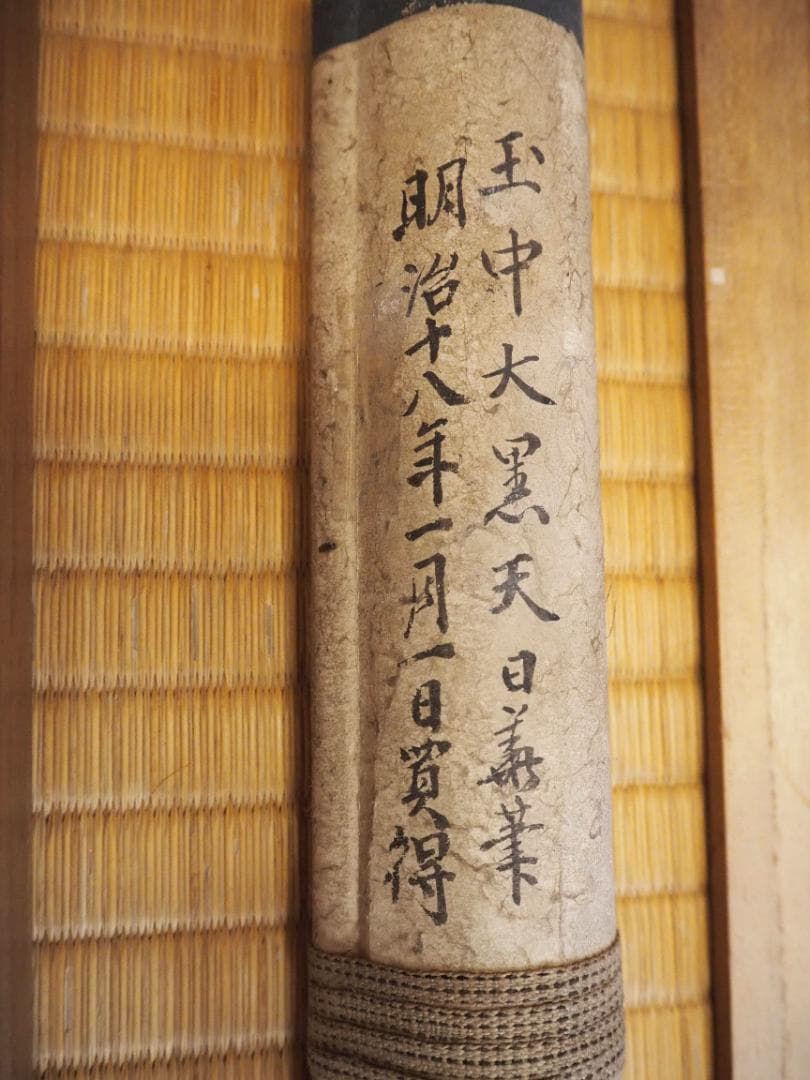 玉中大黒天日華筆
明治十八年一月一日買得